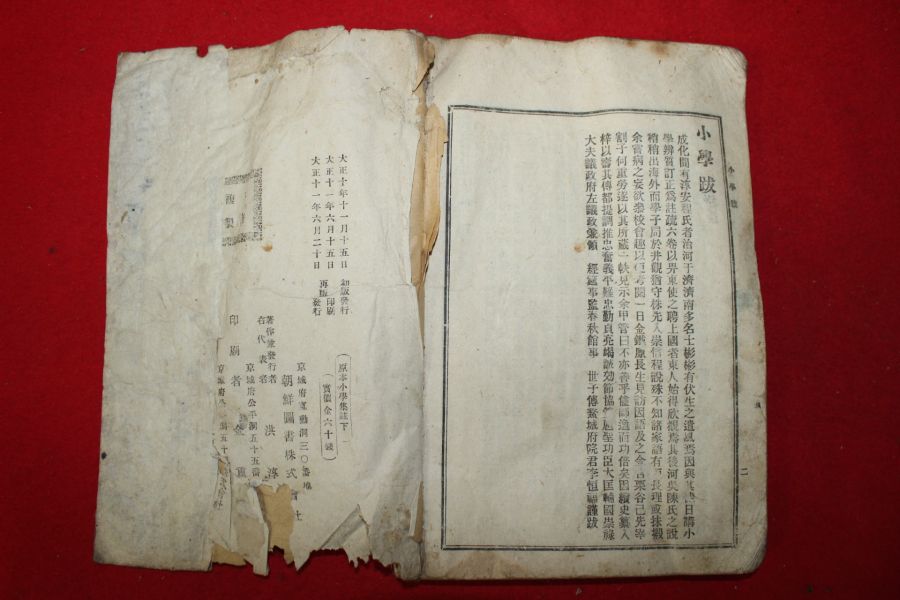 小學跋
成化間有淳安程氏者治河于濟濟南多名士彬彬有伏生之遺風焉因與其日講小
學辨質訂正爲註疏六卷以畀東使之聘上國者東人始得欣覩焉其後河央陳氏之說
稍稍出海外而學子局於井觀猶守株先入崇信程說殊不知諸家語有長理或抹撥
余嘗病之妄欲裒校會趣以便考閱一日金鐵原長生見訪因語及之金栗谷已先宰
割子何重勞遂以其所藏一帙見示余甲管曰不亦善乎師逸而功倍矣因史纂入
梓以壽其傳都提調推忠奮義平難忠勤貞亮竭誠効節協扈聖功臣大匡輔國崇祿
大夫議政府左議政兼領 經筵事監春秋館事 世子傅鰲城府院君李恒福謹跋
小學跋
二
原本小學集註下
(實價金六十錢)
大正十年十一月十五日 初版發行
大正十一年六月十五日 再版印刷
大正十一年六月二十日 再版發行
京城府寬勳洞三〇番地
著作兼發行者 朝鮮圖書株式會社
右代表者 洪淳
京城府公平洞五十五番地
印刷者 金
京城府公平洞五十
複製